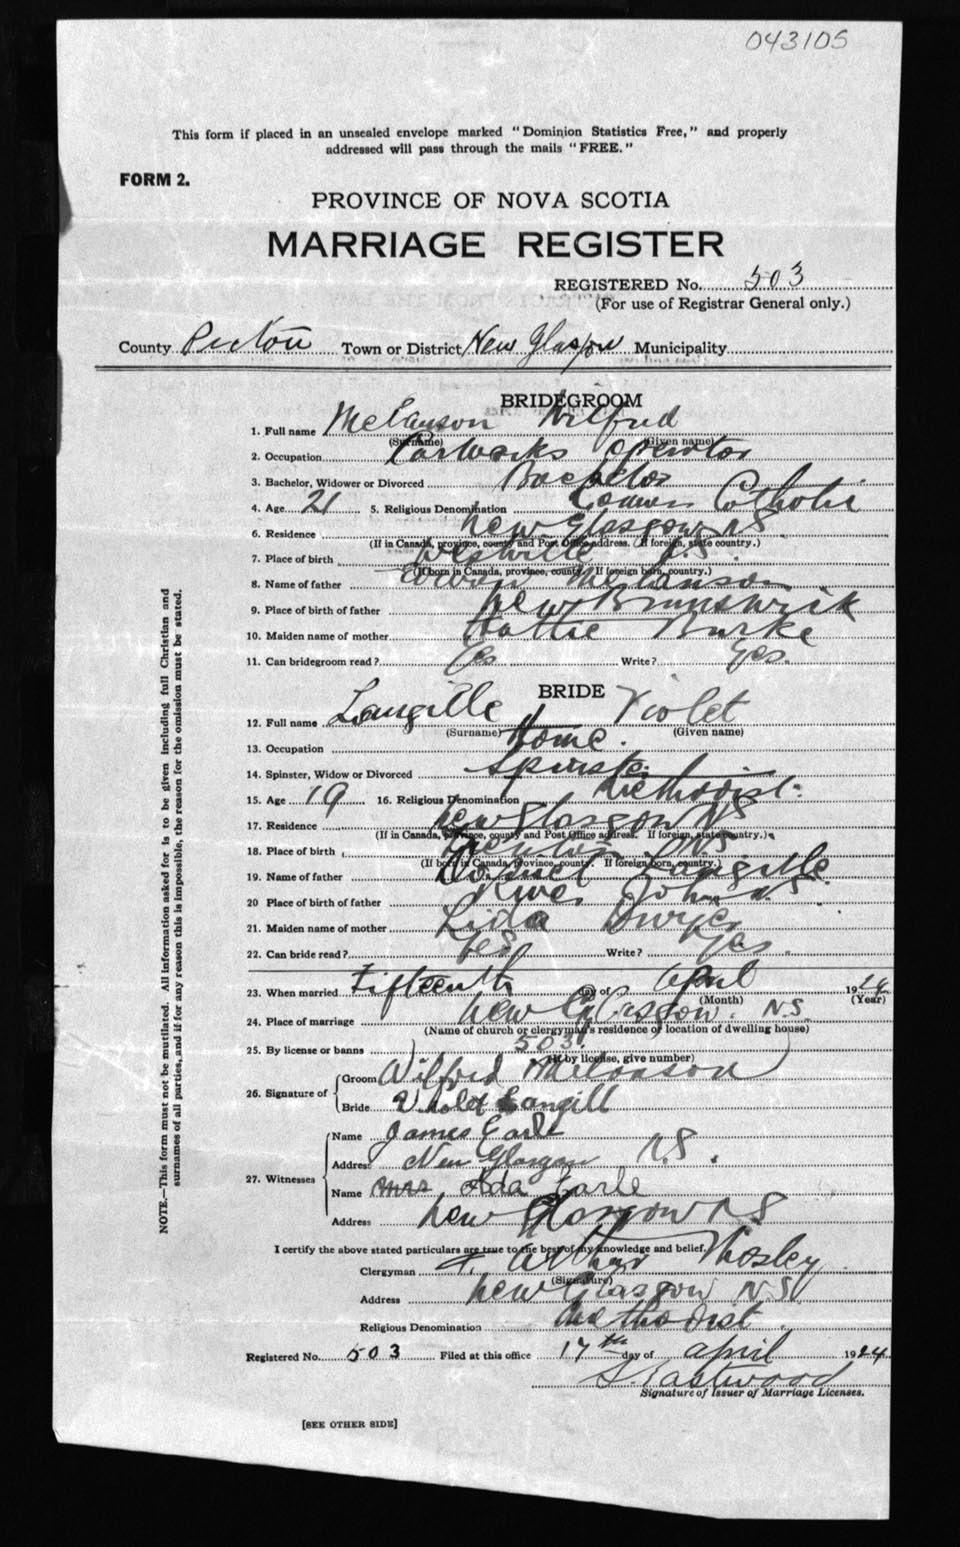 043105
This form if placed in an unsealed envelope marked "Dominion Statistics Free," and properly
addressed will pass through the mails "FREE."
FORM 2.
PROVINCE OF NOVA SCOTIA
MARRIAGE REGISTER
REGISTERED No. 503
(For use of Registrar General only.)
County Pictou Town or District New Glasgow Municipality
BRIDEGROOM
1. Full name Melanson Wilfred
(Surname) (Given name)
2. Occupation Carworks Operator
3. Bachelor, Widower or Divorced Bachelor
4. Age 21 5. Religious Denomination Roman Catholic
6. Residence New Glasgow NS
(If in Canada, province, county and Post Office address. If foreign, state country.)
7. Place of birth Westville N.S.
(If born in Canada, province, county. If foreign born, country.)
8. Name of father Melanson
9. Place of birth of father New Brunswick
10. Maiden name of mother Hattie Burke
11. Can bridegroom read? Yes Write? Yes.
BRIDE
12. Full name Langille Violet
(Surname) (Given name)
13. Occupation Home.
14. Spinster, Widow or Divorced Spinster
15. Age 19 16. Religious Denomination Methodist.
17. Residence New Glasgow NS
(If in Canada, province, county and Post Office address. If foreign, state country.)
18. Place of birth Trenton NS
(If born in Canada, province, county. If foreign born, country.)
19. Name of father Langille
20 Place of birth of father River John N.S.
21. Maiden name of mother Lida Dwyer
22. Can bride read? Yes Write? Yes
23. When married Fifteenth day of April 1924
(Month) (Year)
24. Place of marriage New Glasgow. N.S.
(Name of church or clergyman's residence or location of dwelling house)
25. By license or banns 503.
(If by license, give number)
26. Signature of
Groom Wilfred Melanson
Bride Violet Langill
27. Witnesses
Name James Earle
Address New Glasgow N.S.
Name Mrs Ada Earle
Address New Glasgow NS
I certify the above stated particulars are true to the best of my knowledge and belief.
Clergyman Arthur
(Signature)
Address New Glasgow NS
Religious Denomination Methodist.
Registered No. 503 Filed at this office 17th day of April 1924
Eastwood
Signature of Issuer of Marriage Licenses.
[SEE OTHER SIDE]
NOTE.—This form must not be mutilated. All information asked for is to be given including full Christian and
surnames of all parties, and if for any reason this is impossible, the reason for the omission must be stated.